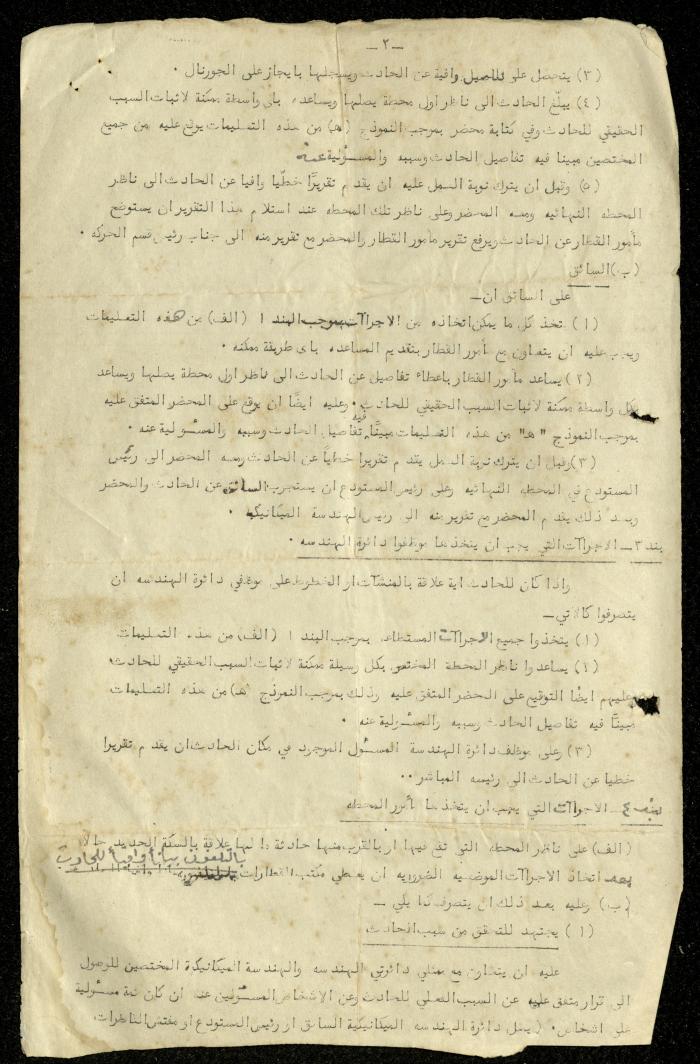 ـ ٢ ـ
(٣) يتحصل على تفاصيل وافية عن الحادث ويسجلها بايجاز على الجورنال .
(٤) يبلّغ الحادث الى ناظر اول محطة يصلها ويساعده باى واسطة ممكنة لاثبات السبب
الحقيقي للحادث وفي كتابة محضر بموجب النموذج (هـ) من هذه التعليمات يوقع عليه من جميع
المختصين مبينا فيه تفاصيل الحادث وسببه والمسؤلية عنه
(٥) وقبل ان يترك نوبة العمل عليه ان يقدم تقريرًا خطّيا وافيا عن الحادث الى ناظر
المحطه النهائيه ومعه المحضر وعلى ناظر تلك المحطه عند استلام هذا التقرير ان يستوضح
مأمور القطار عن الحادث ويرفع تقرير مأمور القطار والمحضر مع تقرير منه الى جناب رئيس قسم الحركه .
(ب) السائق
على السائق ان ـ
(١) يتخذ كل ما يمكن اتخاذه من الاجراآت بموجب البند ١ (الف) من هذه التعليمات
ويجب عليه ان يتعاون مع مأمور القطار بتقديم المساعده باى طريقة ممكنه .
(٢) يساعد مأمور القطار باعطاء تفاصيل عن الحادث الى ناظر اول محطة يصلها ويساعد
بكل واسطة ممكنة لاثبات السبب الحقيقي للحادث . وعليه ايضًا ان يوقع على المحضر المتفق عليه
بموجب النموذج " هـ" من هذه التعليمات مبينًا فيه تفاصيل الحادث وسببه والمسئولية عنه .
(٣) وقبل ان يترك نوبة العمل يقدم تقريرا خطياً عن الحادث ومعه المحضر الى رئيس
المستودع في المحطه النهائيه وعلى رئيس المستودع ان يستجوب السائق عن الحادث والمحضر
وبعد ذلك يقدم المحضر مع تقرير منه الى رئيس الهندسة الميكانيكية .
بند ٣ ـ الاجراآت التي يجب ان يتخذها موظفوا دائرة الهندسه .
واذا كان للحادث اية علاقة بالمنشآت او الخطوط على موظفي دائرة الهندسه ان
يتصرفوا كالاتي ـ
(١) يتخذوا جميع الاجراآت المستطاعه بموجب البند ١ (الف) من هذه التعليمات
(٢) يساعدوا ناظر المحطة المختص بكل وسيلة ممكنة لاثبات السبب الحقيقي للحادث
وعليهم ايضًا التوقيع على المحضر المتفق عليه وذلك بموجب النموذج (هـ) من هذه التعليمات
مبينًا فيه تفاصيل الحادث وسببه والمسئولية عنه .
(٣) وعلى موظف دائرة الهندسة المسئول الموجود في مكان الحادث ان يقدم تقريرا
خطيا عن الحادث الى رئيسه المباشر ..
بند ٤ ـ الاجراآت التي يجب ان يتخذها مأمور المحطه
(الف) على ناظر المحطه التي تقع فيها او بالقرب منها حادثة ما لها علاقة بالسكة الحديد حالا
بعد اتخاذ الاجراآت الموضعيه الضروريه ان يعطي مكتب القطارات بالتلفون بيانأ وافيأ للحادث
(ب) وعليه بعد ذلك ان يتصرف كما يلي ـ
(١) يجتهد للتحقق من سبب الحادث
عليه ان يتعاون مع ممثلي دائرتي الهندسه والهندسة الميكانيكية المختصين للوصول
الى قرار متفق عليه عن السبب الفعلي للحادث وعن الاشخاص المسئولين عنه ان كان ثمة مسئولية
على اشخاص . (يمثل دائرة الهندسه الميكانيكية السائق او رئيس المستودع او مفتش القاطرات